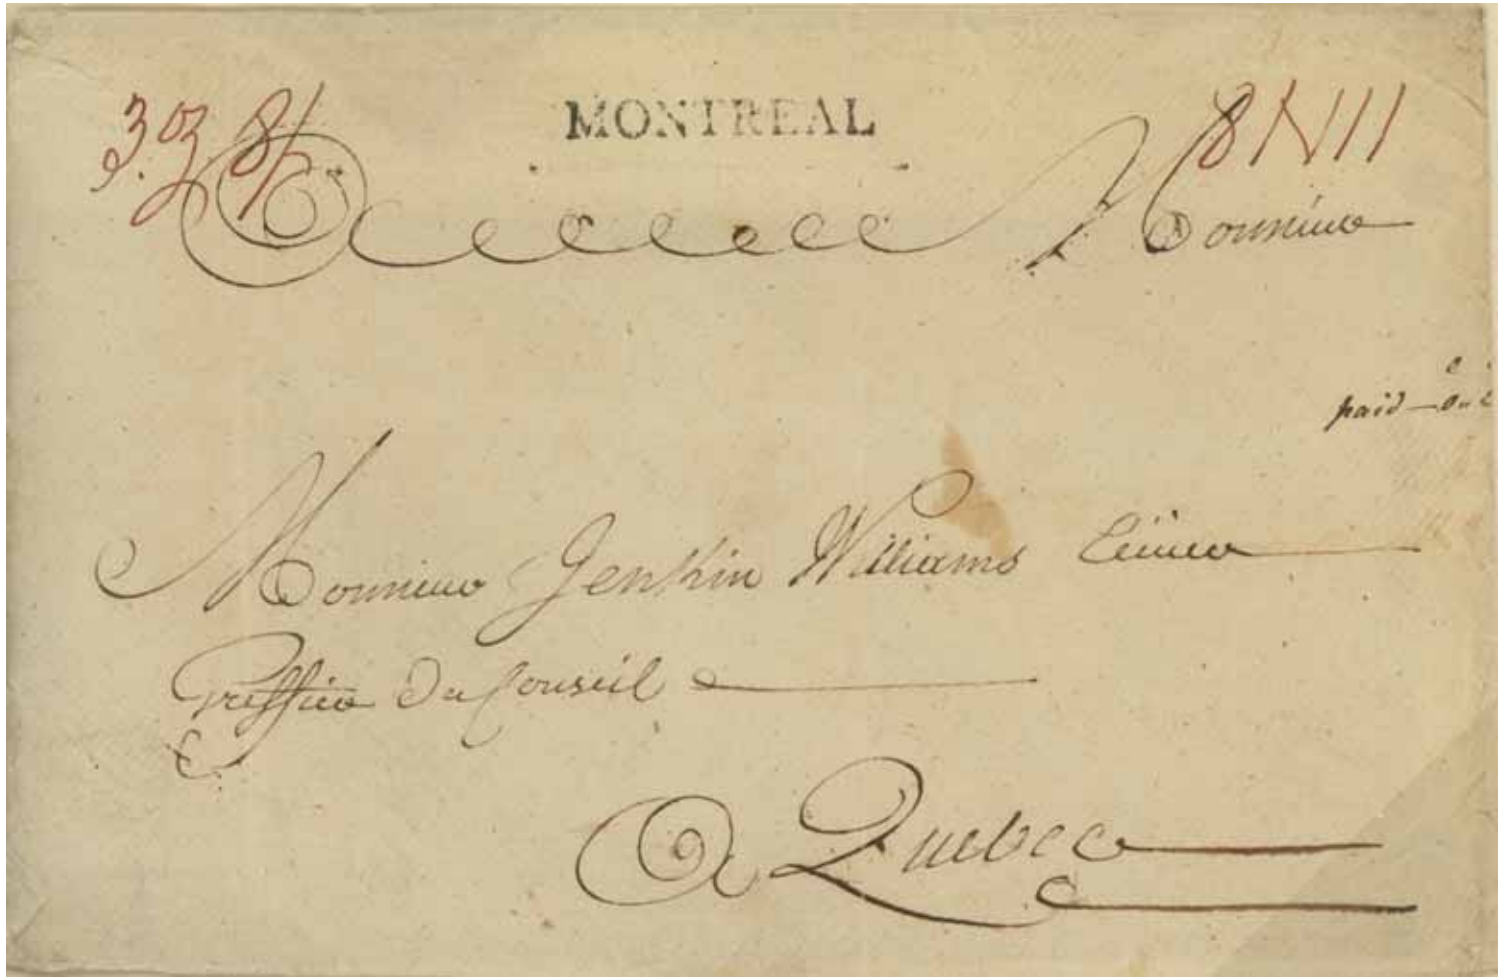 MONTREAL
3 oz 8/
8 N 11
A Monsieur
paid
Monsieur Jenkin Williams Ecuier
Greffier Du Conseil
A Quebec